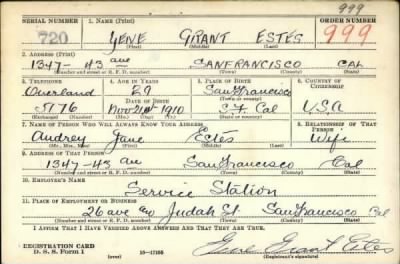 999
SERIAL NUMBER 1. NAME (Print) ORDER NUMBER
720 GENE GRANT ESTES 999
(First) (Middle) (Last)
2. ADDRESS (Print)
1347-43 ave SANFRANCISCO CAL
(Number and street or R. F. D. number) (Town) (County) (State)
3. TELEPHONE 4. AGE IN YEARS 5. PLACE OF BIRTH 6. COUNTRY OF CITIZENSHIP
Overland 29 San Francisco
DATE OF BIRTH (Town or county)
5176 Nov 21st 1910 S.F. Cal U.S.A
(Exchange) (Number) (Mo.) (Day) (Yr.) (State or country)
7. NAME OF PERSON WHO WILL ALWAYS KNOW YOUR ADDRESS 8. RELATIONSHIP OF THAT PERSON
Audrey Jane Estes Wife
(Mr., Mrs., Miss) (First) (Middle) (Last)
9. ADDRESS OF THAT PERSON
1347-43 ave San Francisco Cal
(Number and street or R. F. D. number) (Town) (County) (State)
10. EMPLOYER'S NAME
Service Station
11. PLACE OF EMPLOYMENT OR BUSINESS
26 ave Judah St. San Francisco Cal
(Number and street or R. F. D. number) (Town) (County) (State)
I AFFIRM THAT I HAVE VERIFIED ABOVE ANSWERS AND THAT THEY ARE TRUE.
REGISTRATION CARD
D. S. S. Form 1 (over) 16-17105 Gene Grant Estes
(Registrant's signature)